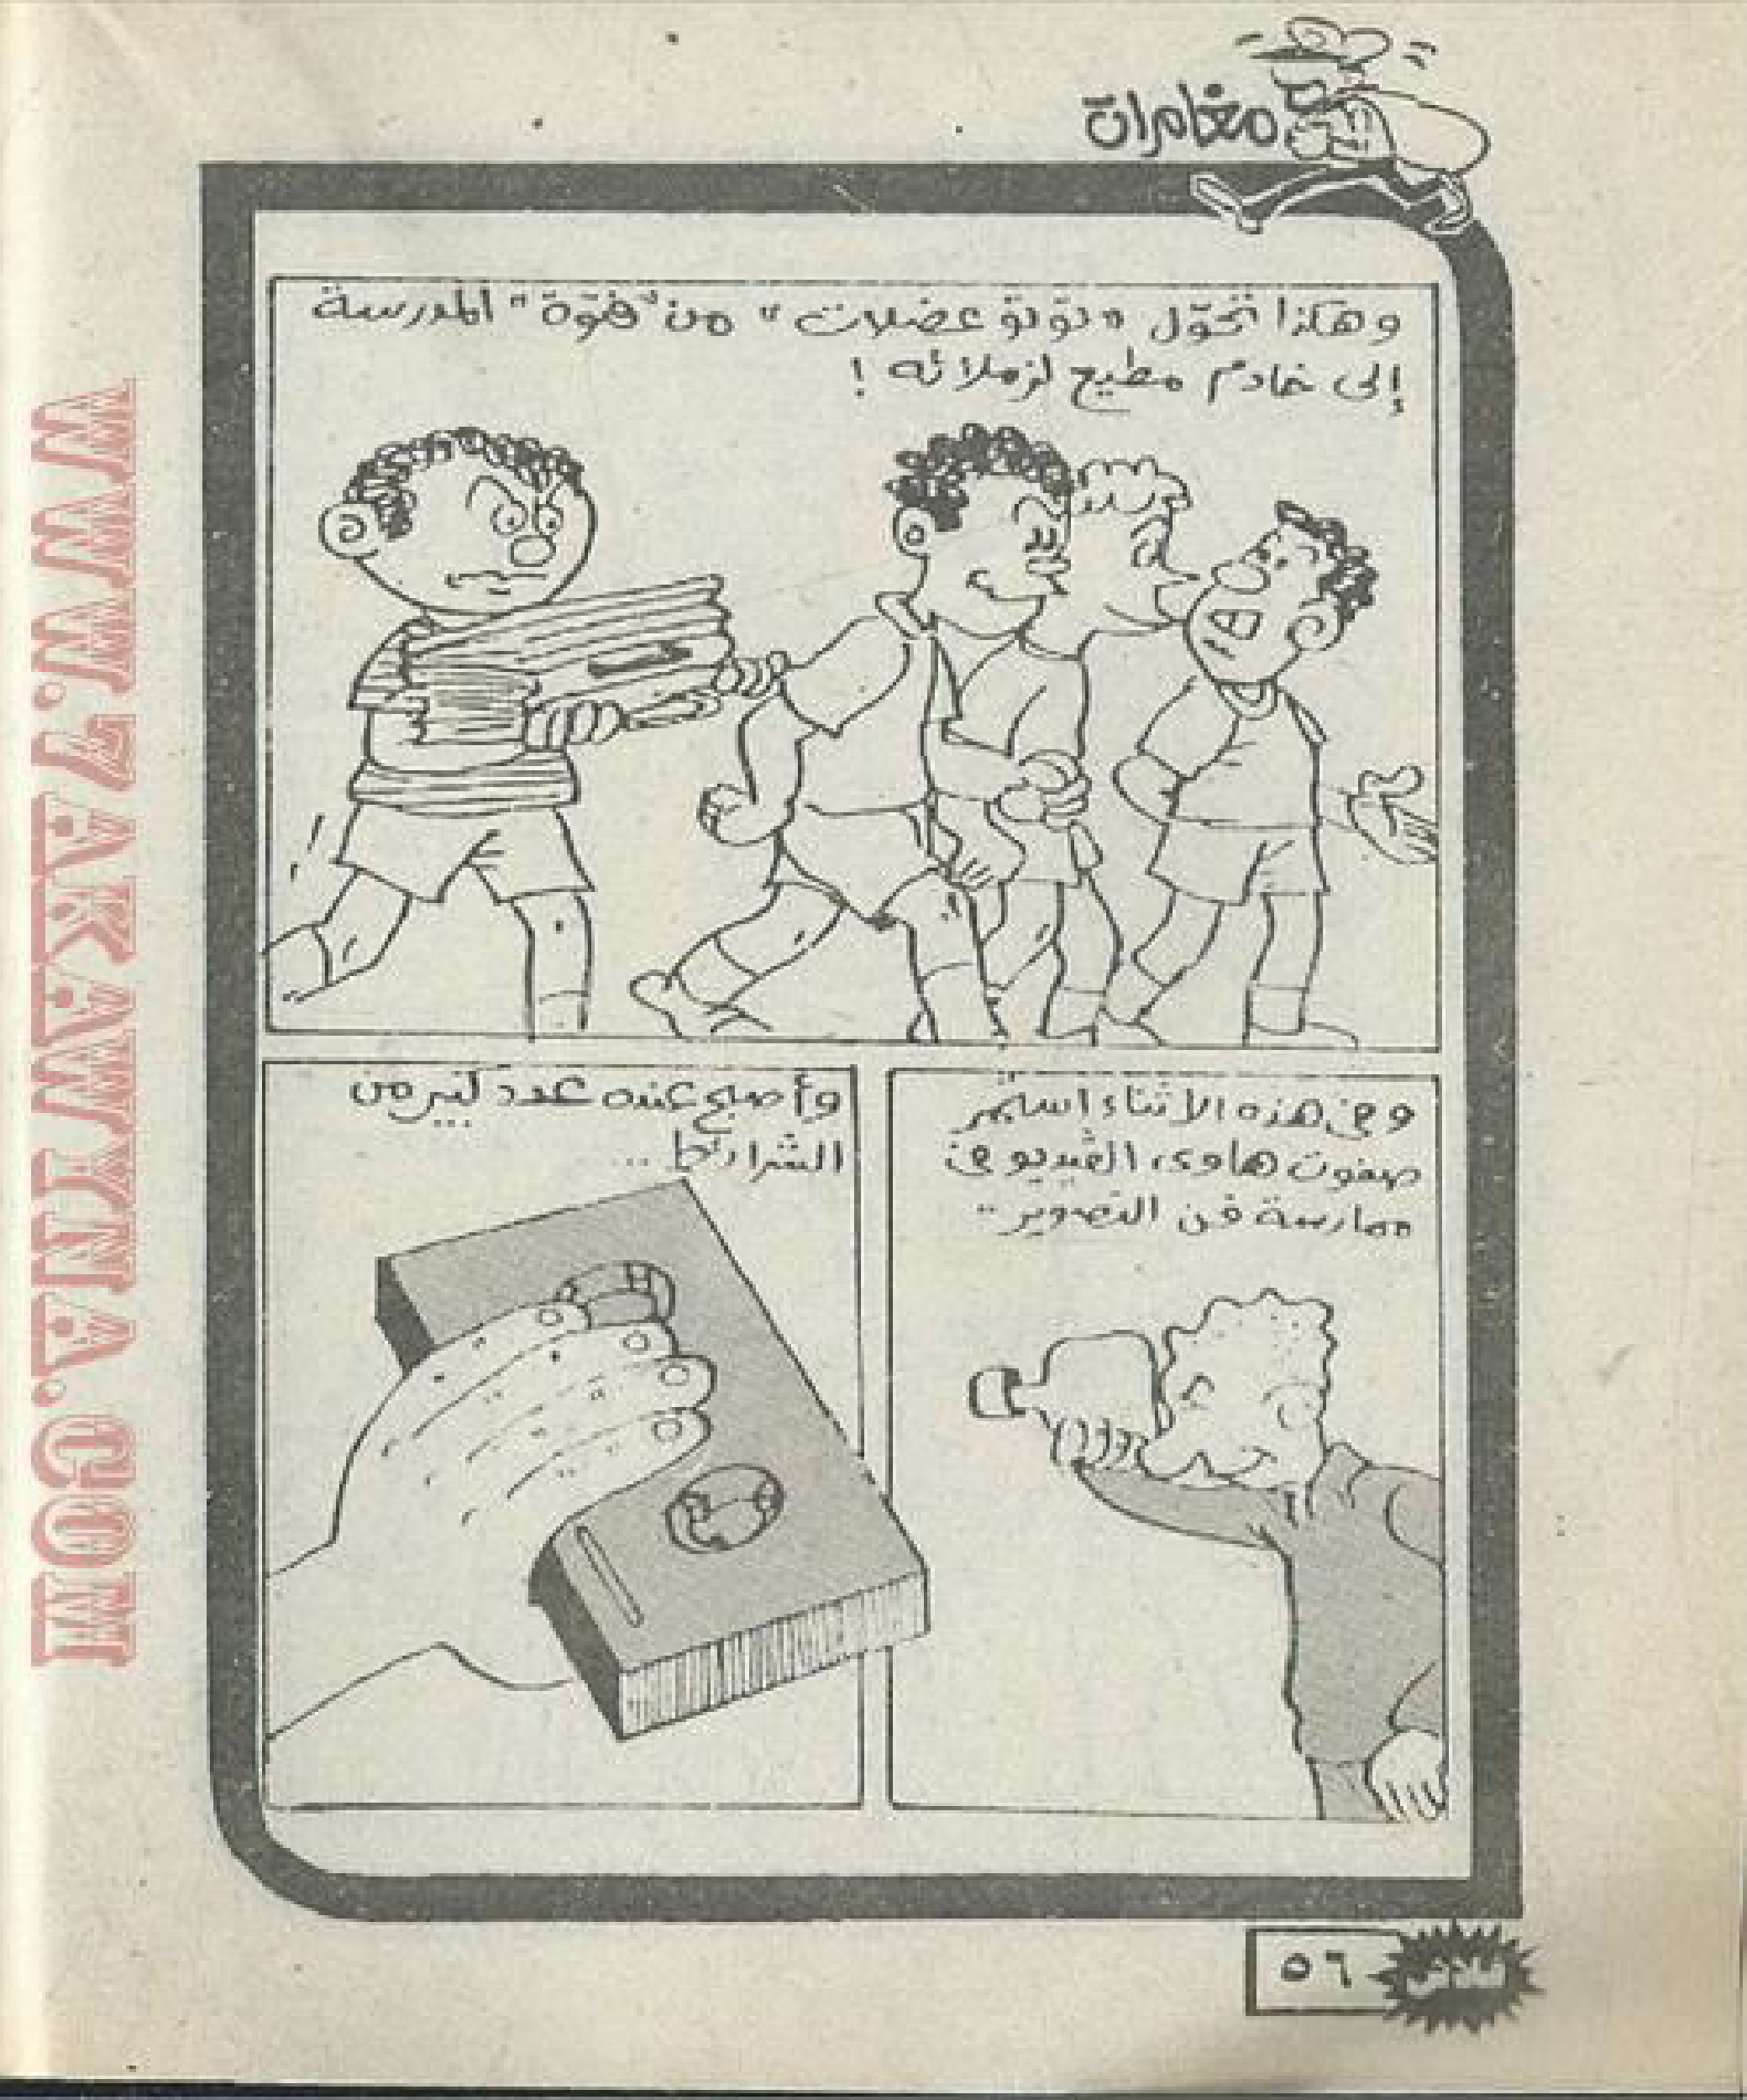 مغامرات
وهكذا تحوّل «توتو عضلات» من "فتوّة" المدرسة
إلى خادم مطيع لزملائه !
وفى هذه الأثناء استمر
صفوت هاوى الڤيديو فى
ممارسة فن التصوير ..
وأصبح عنده عدد كبير من
الشرائط ...
٥٦
WWW.7AKAWINA.COM